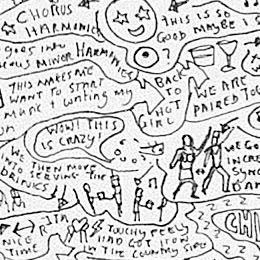 CHORUS
HARMONICS
THIS IS SO
GOOD MAYBE I S
goes into
MINOR HARMONICS
?
THIS MAKES ME
WANT TO START
MUSIC + WRITING MY
BACK
TO
HOT
GIRL
WE ARE
PAIRED TOG
WOW! THIS
IS CRAZY
WE THEN MOVE
INTO SERVING THE
DRINKS
WE GO
INCRE
SYNC
DAN
RITA
NICE
TIME
TOUCHY FEELY
HAD GOT IT ON
IN THE COUNTRY SIDE
Z Z Z Z
CHI
Z Z Z